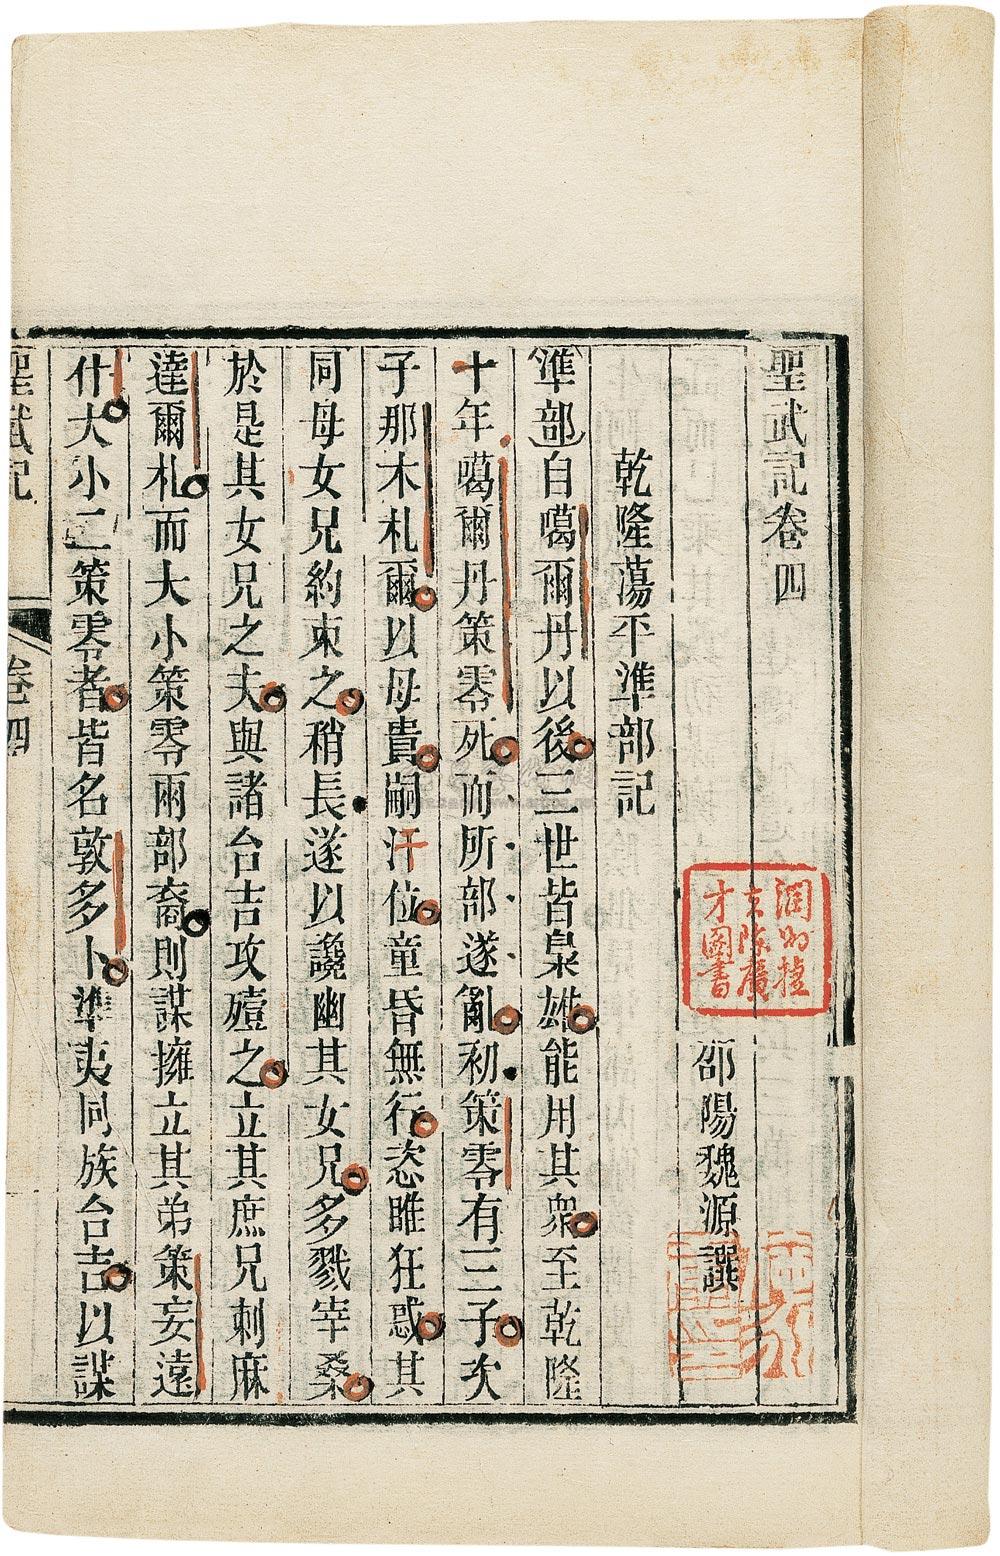 聖武記卷四
邵陽魏源譔
乾隆蕩平準部記
準部自噶爾丹以後三世皆梟雄能用其衆至乾隆
十年噶爾丹策零死而所部遂亂初策零有三子次
子那木札爾以母貴嗣汗位童昏無行恣睢狂惑其
同母女兄約束之稍長遂以讒幽其女兄多戮宰桑
於是其女兄之夫與諸台吉攻殪之立其庶兄剌麻
達爾札而大小策零兩部裔則謀擁立其弟策妄達
什大小二策零者皆名敦多卜準夷同族台吉以謀
聖武記
卷四